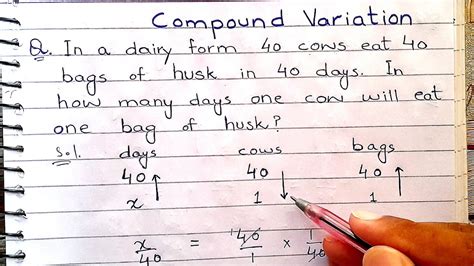 Compound Variation
Q. In a dairy form 40 cows eat 40
bags of husk in 40 days. In
how many days one cow will eat
one bag of husk?
Sol. days cows bags
40 ↑ 40 ↓ 40 ↑
x 1 1
x/40 = 40/1 × 1/40